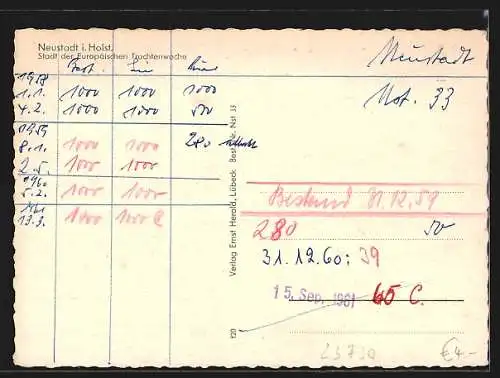 Neustadt i. Holst.
Stadt der Europäischen Trachtenwoche
Neustadt
Nst. 33
Best.
1958
1.1. 1000 1000 1000
4.2. 1000 1000 500
1959
8.1. 1000 1000 280
2.5. 1000 1000
1960
5.2. 1000 1000
1961
13.3. 1000 1000 C
Verlag Ernst Herold, Lübeck Best.-Nr. Nst 33
Bestand 31.12.59
280
31.12.60: 39
15. Sep. 1961 65 C.
120
€4.-